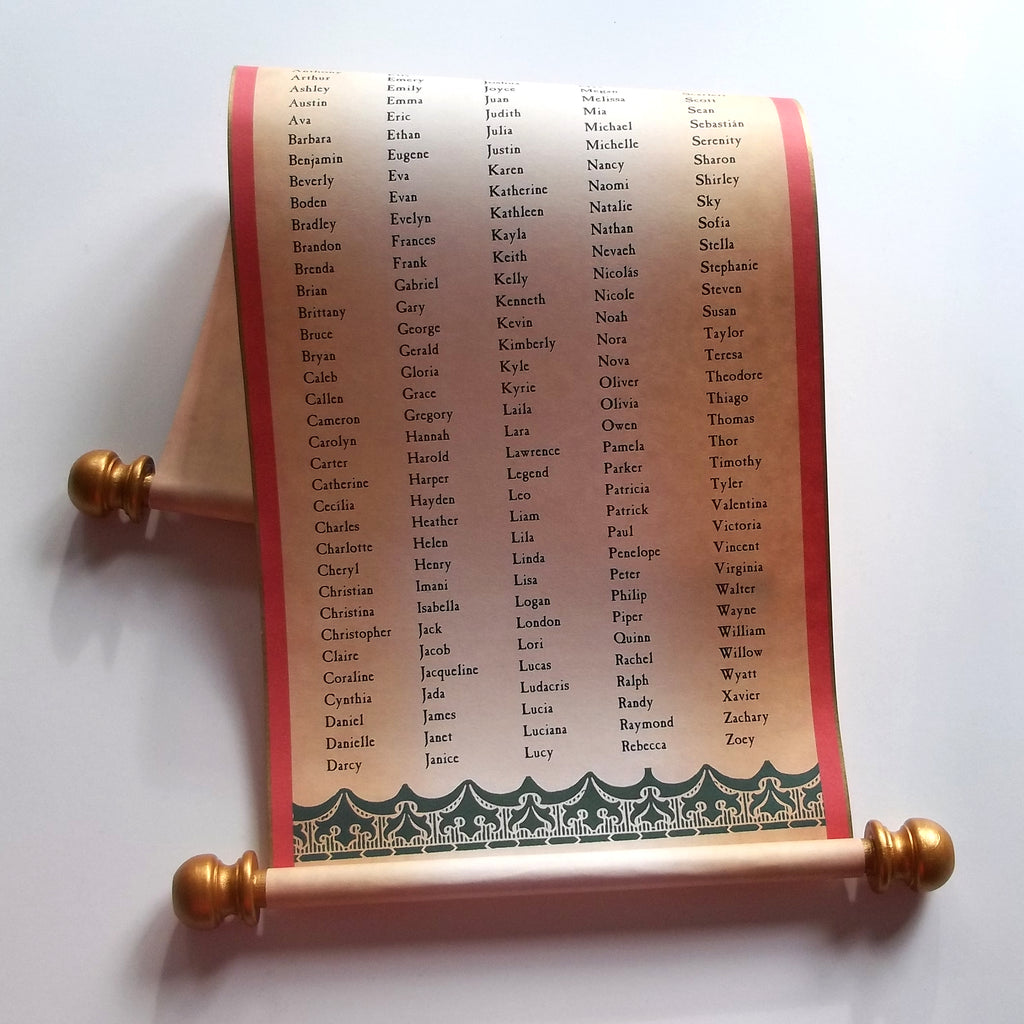 Arthur
Ashley
Austin
Ava
Barbara
Benjamin
Beverly
Boden
Bradley
Brandon
Brenda
Brian
Brittany
Bruce
Bryan
Caleb
Callen
Cameron
Carolyn
Carter
Catherine
Cecilia
Charles
Charlotte
Cheryl
Christian
Christina
Christopher
Claire
Coraline
Cynthia
Daniel
Danielle
Darcy
Emery
Emily
Emma
Eric
Ethan
Eugene
Eva
Evan
Evelyn
Frances
Frank
Gabriel
Gary
George
Gerald
Gloria
Grace
Gregory
Hannah
Harold
Harper
Hayden
Heather
Helen
Henry
Imani
Isabella
Jack
Jacob
Jacqueline
Jada
James
Janet
Janice
Joyce
Juan
Judith
Julia
Justin
Karen
Katherine
Kathleen
Kayla
Keith
Kelly
Kenneth
Kevin
Kimberly
Kyle
Kyrie
Laila
Lara
Lawrence
Legend
Leo
Liam
Lila
Linda
Lisa
Logan
London
Lori
Lucas
Ludacris
Lucia
Luciana
Lucy
Megan
Melissa
Mia
Michael
Michelle
Nancy
Naomi
Natalie
Nathan
Nevaeh
Nicolás
Nicole
Noah
Nora
Nova
Oliver
Olivia
Owen
Pamela
Parker
Patricia
Patrick
Paul
Penelope
Peter
Philip
Piper
Quinn
Rachel
Ralph
Randy
Raymond
Rebecca
Scott
Sean
Sebastián
Serenity
Sharon
Shirley
Sky
Sofia
Stella
Stephanie
Steven
Susan
Taylor
Teresa
Theodore
Thiago
Thomas
Thor
Timothy
Tyler
Valentina
Victoria
Vincent
Virginia
Walter
Wayne
William
Willow
Wyatt
Xavier
Zachary
Zoey